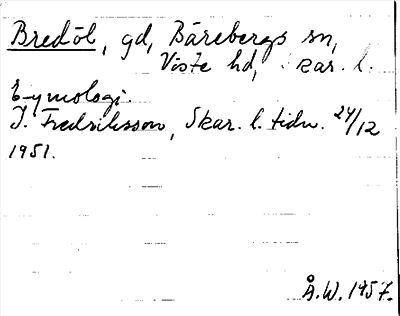 Bredöl, gd, Bärebergs sn,
Viste hd, Skar. l.
Etymologi.
J. Fredriksson, Skar. l. tidn. 24/12
1951.
Å.W. 1957.